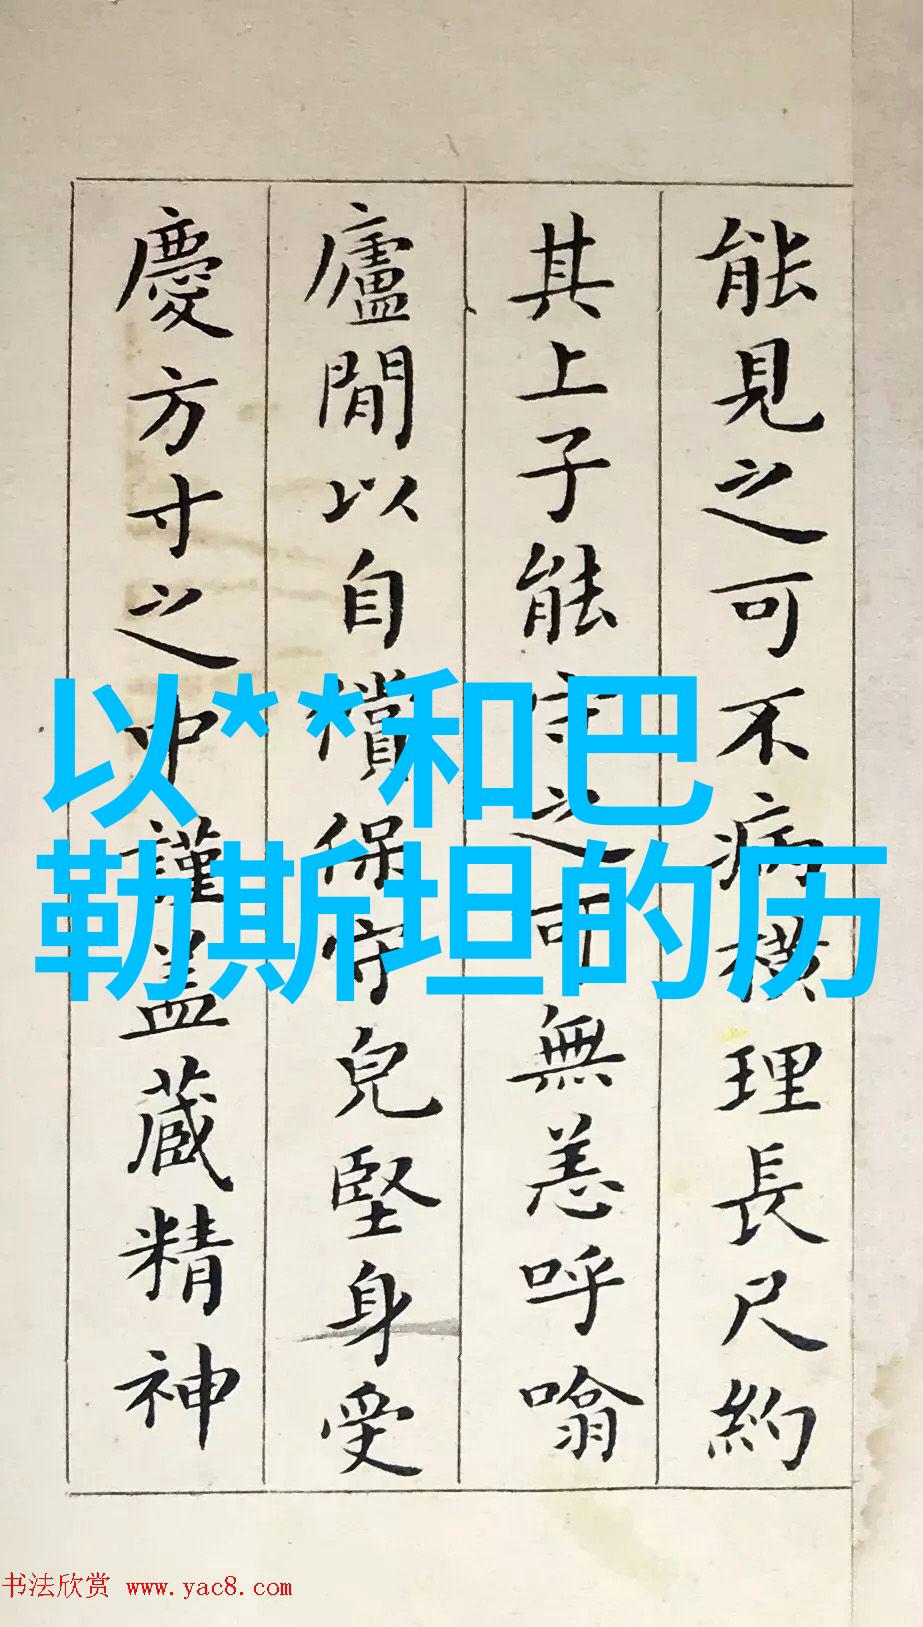 能見之可不病横理長尺約
其上子能守之可無恙呼噏
廬閒以自償保守兒堅身受
慶方寸之中謹盖藏精神
以**和巴
勒斯坦的历
书法欣赏 www.yac8.com